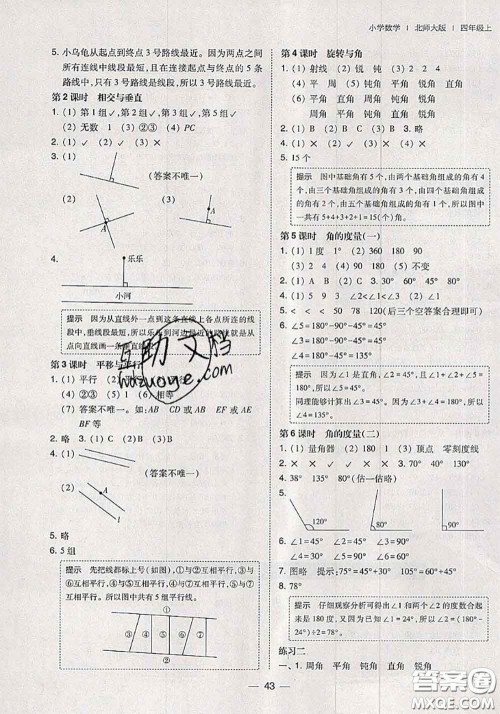 小学数学 | 北师大版 | 四年级上
5. 小乌龟从起点到终点3号路线最近。因为两点之间
所有连线中线段最短，
段，且在连接起点与终点的5条
路线中只有3号路线是线段，所以3号路线最近。
第2课时 相交与垂直
1. (1) 第1组✓，第2组✓，第4组✓。
2. (1) 无数 1 (2) ②③ (3) ②③ (4) PC
3. (1)
(答案不唯一)
(2)
A
A
4.
乐乐
小河
提示 因为从直线外一点到这条直线上各点所连的线
段中，垂线段最短，所以乐乐到河边最近的路线就是从
点向直线画一条垂线。
第3课时 平移与平行
1. (1) 平行
(4) ②③ (5) 1 (6) ✓ ✓ ✓
(7) 答案不唯一。如AB CD或AB EF或AE
BF等
2. 略 3. (1) C (2) B (3) C
4. (1)
(答案不唯一)
(2)
A
l
5. 略
6. 5组
提示 先把线都标上号(如图)，①与③互相平行，③与
⑥互相平行，①与⑥互相平行，②与⑤互相平行，④与
⑦互相平行。所以图中共有5组线互相平行。
① ② ③ ④ ⑤ ⑥
第4课时 旋转与角
1. (1) 射线 (2) 锐 钝 (3) 2
(4) 平 周 (5) 锐角 直角 钝角
(6) 平角 直角 锐角 钝角 周角 锐角
周角 钝角 平角 直角 锐角
2. (1) B (2) B (3) C (4) A 3. 略
5. 15个
提示 图中基础角有5个，由两个基础角组成的角有4
个，由三个基础角组成的角有3个，由四个基础角组成的
角有2个，由五个基础角组成的角有1个，所以图中一
共有5+4+3+2+1=15(个)角。
第5课时 角的度量(一)
1. (1) 1度 1° (2) 360 180 90
(3) 180 90 (4) 65 (5) 不变
2. (1) A (2) D (3) C 3. 30° 60° 45° 80°
4. ✕ ✓ ✕ ✓ ✕ 5. ∠2<∠4<∠1<∠3
6. 50 70 90 110 120 (后三个空答案合理即可)
7. ∠5=180°-90°-45°=45°
∠6=180°-90°-45°=45°
∠8=180°-45°=135°
提示 因为∠1是直角，∠2=45°，∠1、∠2和∠3组成
一个平角是180°，所以∠3=180°-90°-45°=45°。
同理能够计算出∠4=45°。因为∠3和∠4组成一个平
角，∠3=45°，∠3+∠4=180°，所以∠4=180°-45°
=135°。
第6课时 角的度量(二)
1. (1) 量角器 (2) 180 (3) 顶点 零刻度线
2. ✕ ✕ ✓ ✓ ✕ 3. 70° 90° 40° 60°
4. 38° 135° 80° 60° (估一估略)
5.
120° 80° 90°
6. ∠1=45° ∠2=45° ∠3=90° ∠4=45°
7. 图略 提示：75°=45°+30° 120°=90°+30°
8. 78°
提示 仔细观察分析可得出∠1和两个∠2的度数合起
来是180°，现又知∠1=24°，所以∠2=(180°-
24°)÷2=78°。
练习二
一、1. 周角 平角 钝角 直角 锐角
43
互助文档
wozuoye.com
答案圈
MXQE.COM